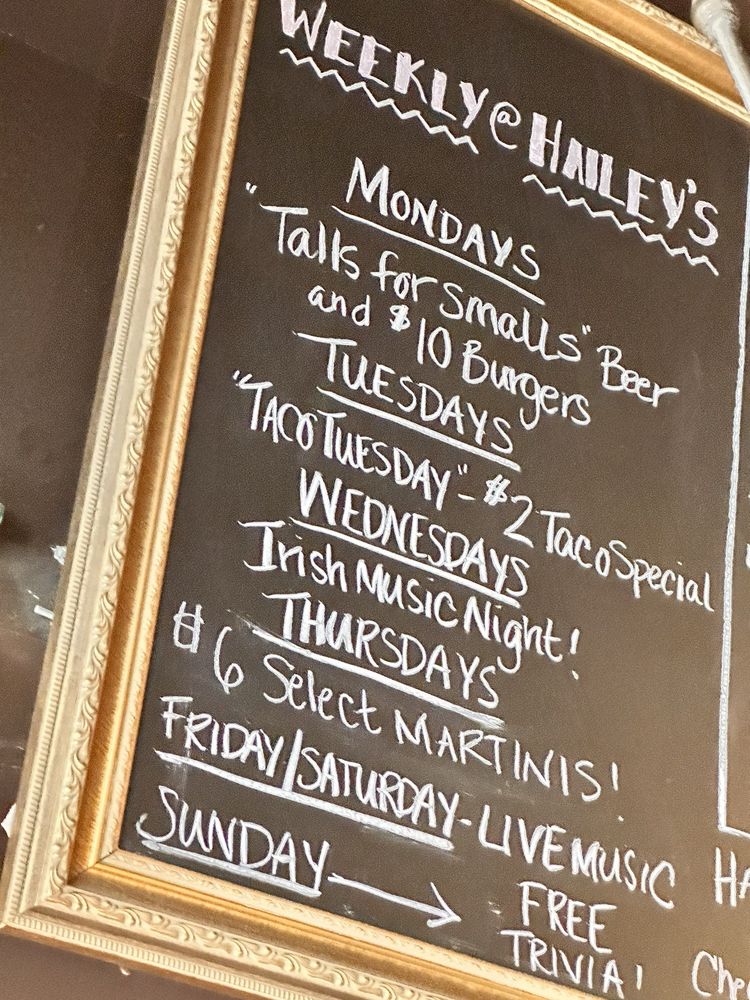 WEEKLY @ HAILEY'S
MONDAYS
"Talls for smalls" Beer
and $10 Burgers
TUESDAYS
"TACO TUESDAY" - $2 Taco Special
WEDNESDAYS
Irish Music Night!
THURSDAYS
$6 Select MARTINIS!
FRIDAY/SATURDAY - LIVE MUSIC
SUNDAY → FREE
TRIVIA!